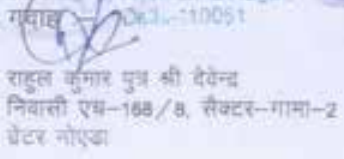 गवाह
110051
राहुल कुमार पुत्र श्री देवेन्द्र
निवासी एच-168/8, सैक्टर-गामा-2
ग्रेटर नोएडा